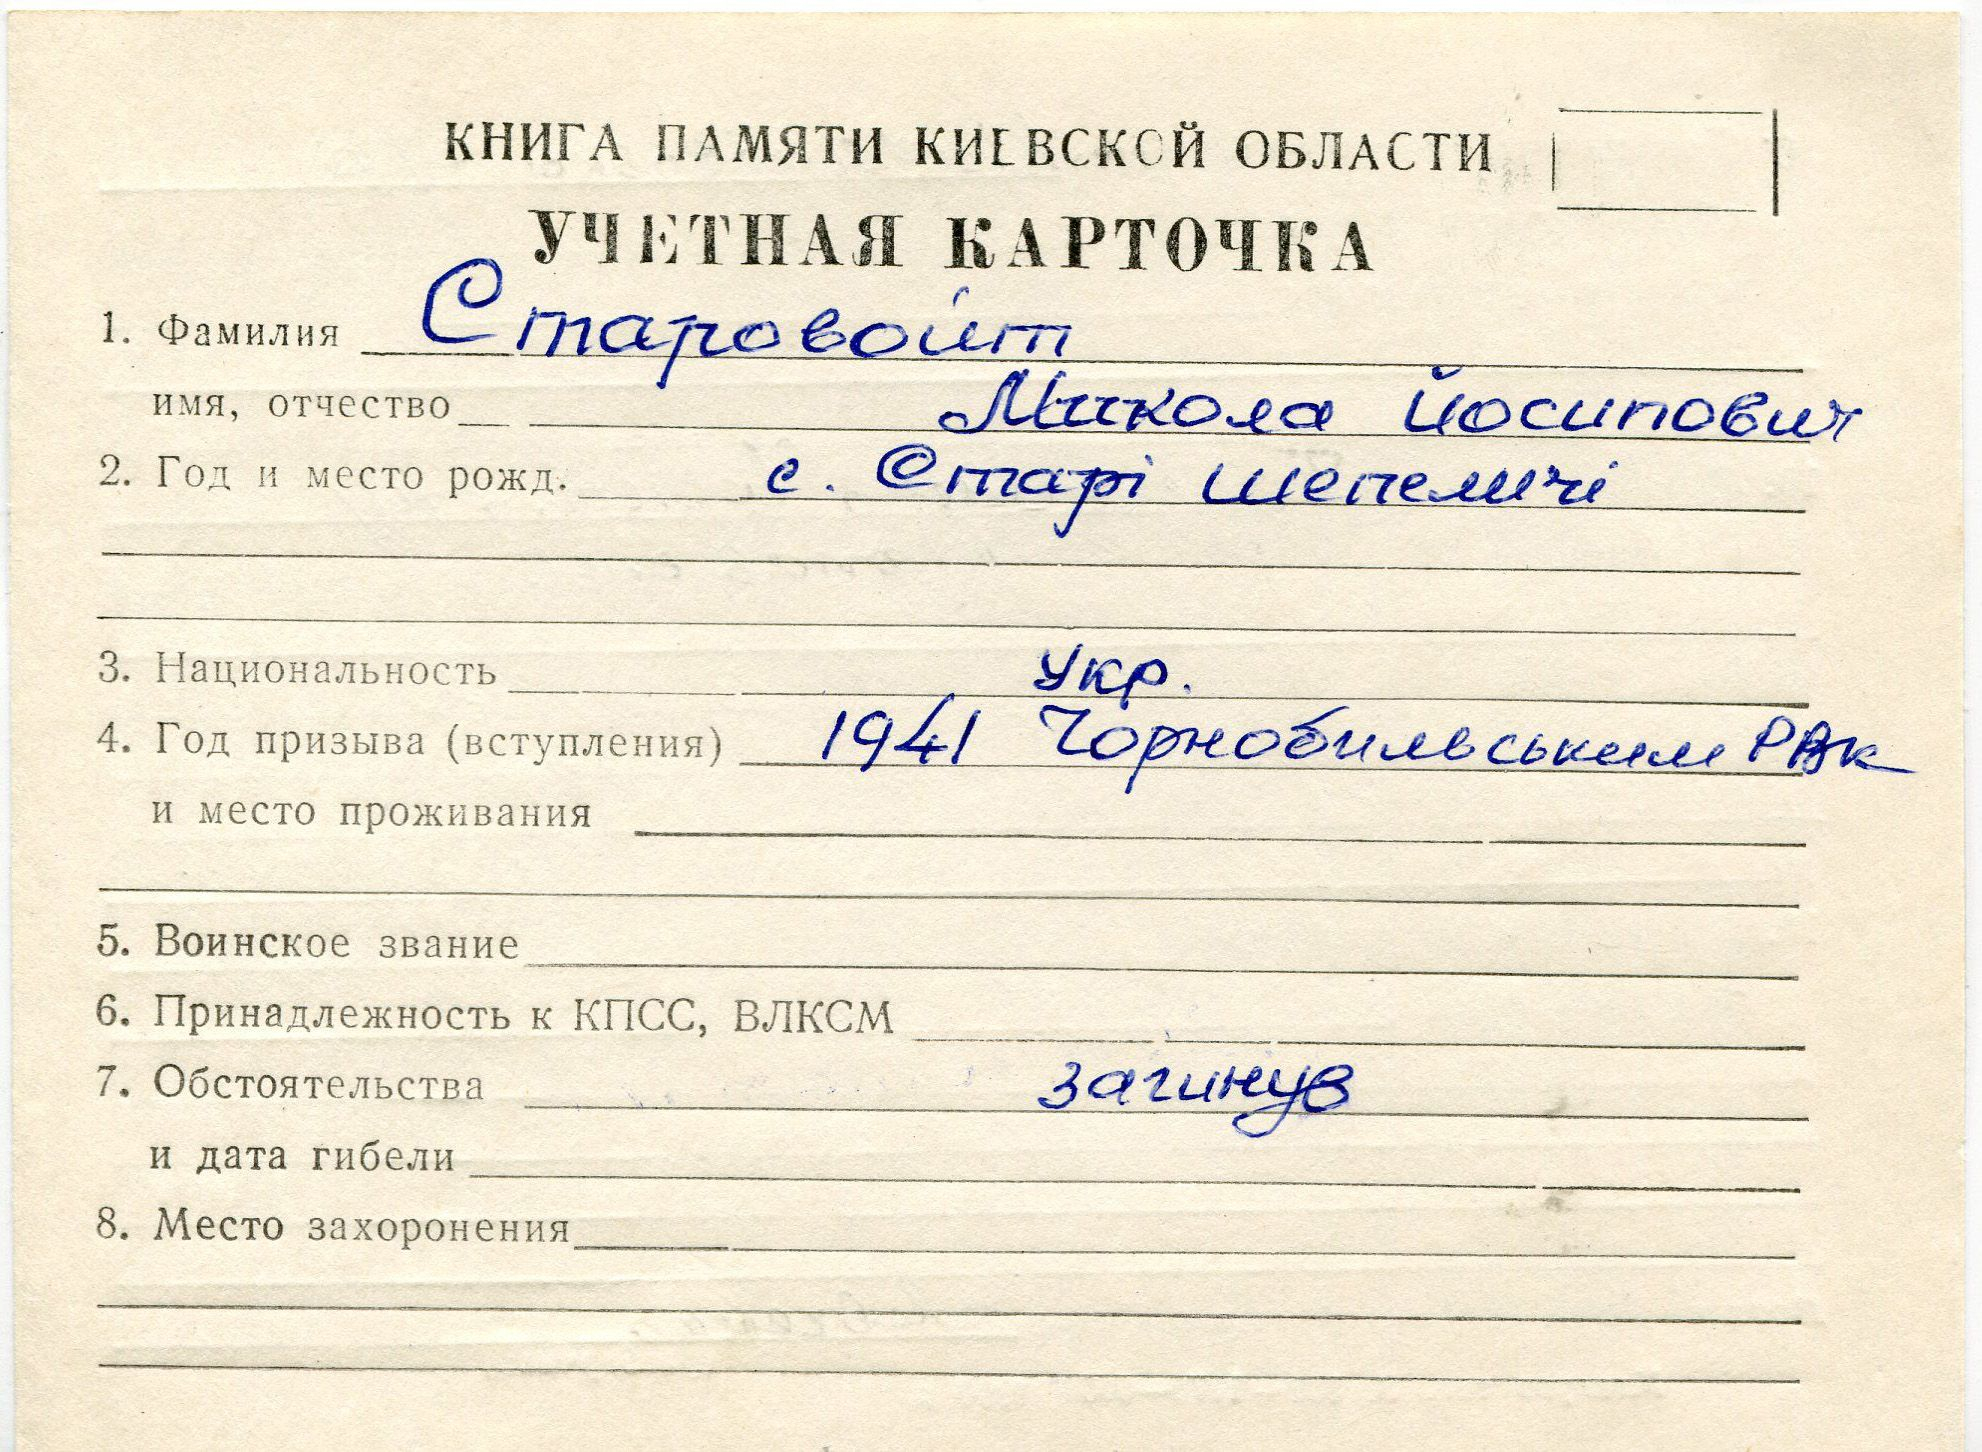 КНИГА ПАМЯТИ КИЕВСКОЙ ОБЛАСТИ
УЧЕТНАЯ КАРТОЧКА
1. Фамилия Старовойт
имя, отчество Микола Йосипович
2. Год и место рожд. с. Старі Шепеличі
3. Национальность Укр.
4. Год призыва (вступления) 1941 Чорнобильським РВК
и место проживания
5. Воинское звание
6. Принадлежность к КПСС, ВЛКСМ
7. Обстоятельства загинув
и дата гибели
8. Место захоронения